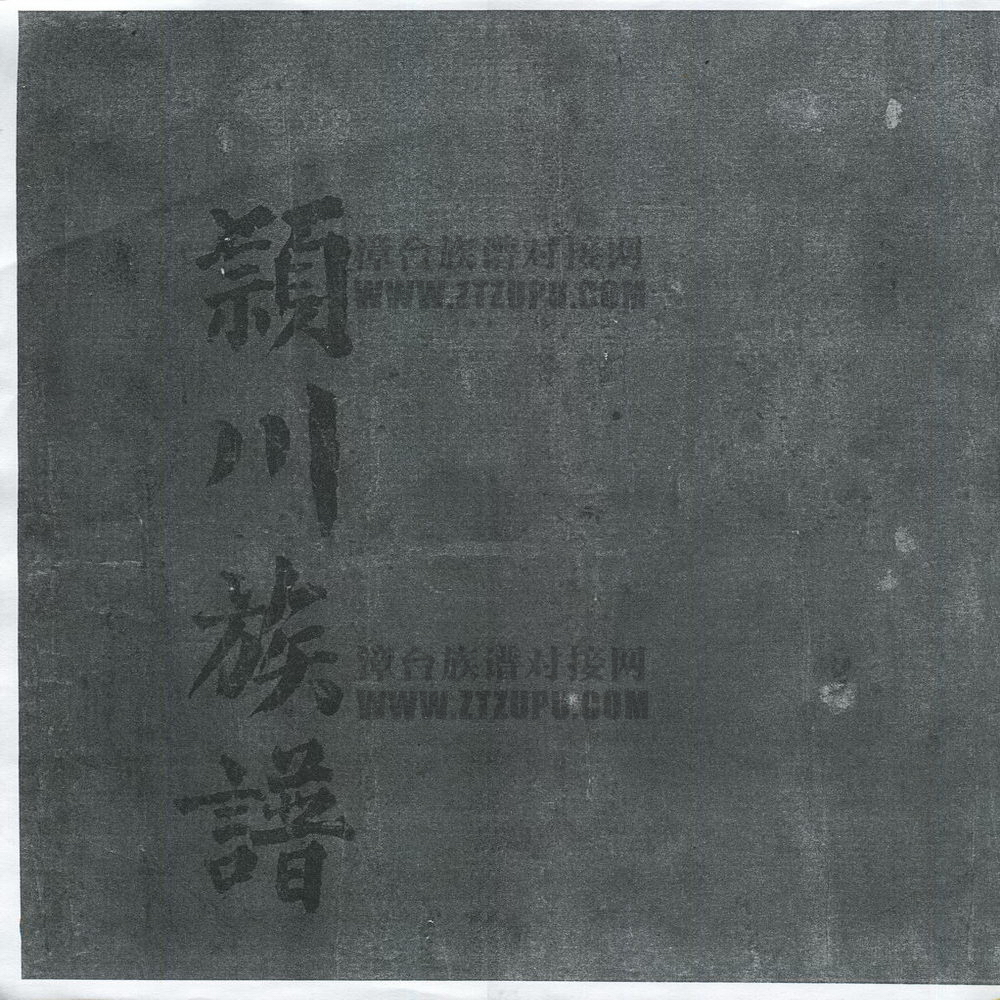 頴川族譜
漳台族谱对接网
WWW.ZTZUPU.COM
漳台族谱对接网
WWW.ZTZUPU.COM